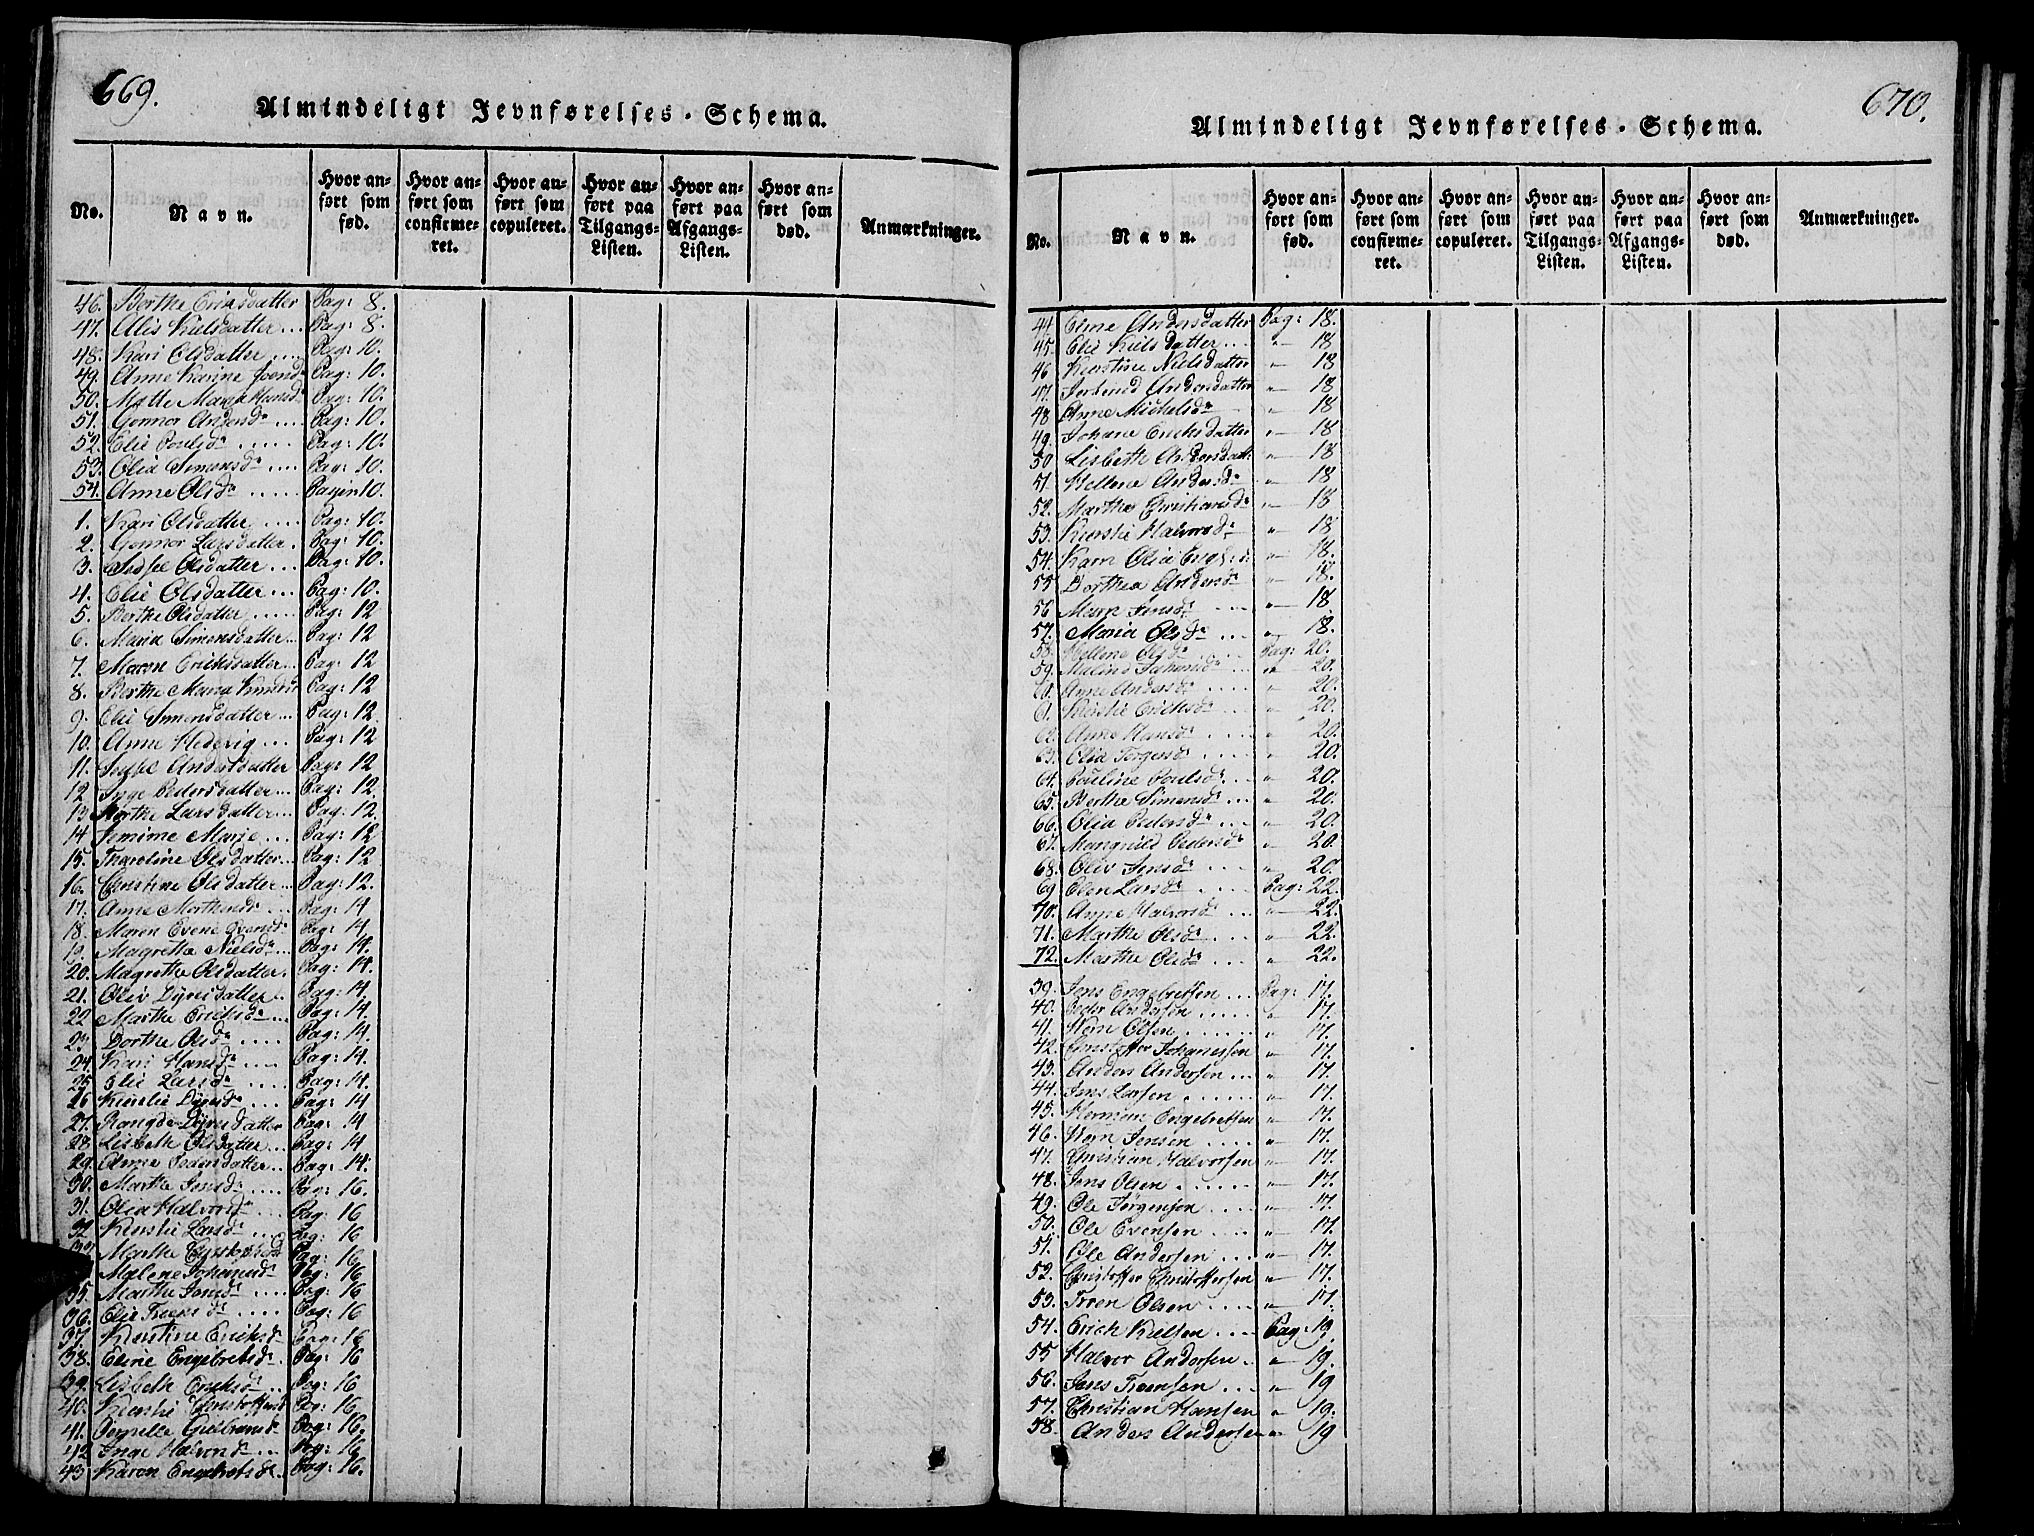 669.
Almindeligt Jevnførelses-Schema.
No.
Navn.
Hvor anført som fød.
Hvor anført som confirmeret.
Hvor anført som copuleret.
Hvor anført paa Tilgangs-Listen.
Hvor anført paa Afgangs-Listen.
Hvor anført som død.
Anmærkninger.
46. Berthe Eriksdatter Pag: 8.
47. Alis Kielsdatter ... Pag: 8.
48. Kari Olsdatter .... Pag: 10.
49. Anne Karine Joensdr Pag: 10.
50. Mette Maria Hansd Pag: 10.
51. Gonnor Andersdr .... Pag: 10.
52. Elie Poulsdr ..... Pag: 10.
53. Olia Simensdr .... Pag: 10.
54. Anne Olsdr ..... Pagin 10.
1. Kari Olsdatter .... Pag: 10.
2. Gonnor Larsdatter . Pag: 10.
3. Sidsel Olsdatter ... Pag: 10.
4. Elie Olsdatter ... Pag: 10.
5. Berthe Olsdatter ..... Pag: 12
6. Maria Simensdatter.. Pag: 12
7. Maren Eriksdatter ... Pag: 12
8. Berthe Maria Pag: 12
9. Elie Simensdatter ... Pag: 12.
10. Anne Hedevig .... Pag: 12
11. Andersdatter Pag: 12
12 Inge Pedersdatter... Pag: 12.
13 Marthe Larsdatter... Pag: 12.
14 Marie ... Pag: 12.
15. Tharoline Olsdatter... Pag: 12
16. Christine Olsdatter... Pag: 12.
17. Anne Mortensdr .... Pag: 14
18. Maren Evene Evensdr Pag: 14
19. Magrethe Nielsdr... Pag: 14.
20. Magrethe Olsdatter. Pag: 14.
21. Oliv Dyresdatter.. Pag: 14.
22 Marthe Ericksdr... Pag: 14.
23 Dorthe Olsdr .... Pag: 14.
24. Kari Hansdr .... Pag: 14.
25. Elie Larsdr .... Pag: 14.
26 Kierstie Dyresdr .... Pag: 14
27. Rangde Dyresdatter Pag: 14
28. Lisbeth Olsdatter... Pag: 14
29. Anne Pedersdatter.. Pag: 14.
30. Marthe Jensdr .... Pag: 16.
31. Olia Halvorsdr .... Pag: 16
32 Kierstie Larsdr .... Pag: 16
Marthe Pag: 16
Malene Johannesdr Pag: 16
35. Marthe Jensdr .... Pag: 16
36. Elie Troensdr ..... Pag: 16
37. Kierstine Eriksdr Pag: 16
38. Eline Engebretsdr . Pag: 16
39. Lisbeth Ericksdr .. Pag: 16
40. Kierstie Christoffersd Pag: 16
41. Pernille Gulbransdr Pag: 16.
42 Inge Halvorsdr ... Pag: 16
43 Karen Engebretsdr.. Pag: 16.
670.
Almindeligt Jevnførelses-Schema.
No.
Navn.
Hvor anført som fød.
Hvor anført som confirmeret.
Hvor anført som copuleret.
Hvor anført paa Tilgangs-Listen.
Hvor anført paa Afgangs-Listen.
Hvor anført som død.
Anmærkninger.
44 Andersdatter Pag: 18.
45. Elie Kielsdatter ... " 18
46 Kierstine Nielsdatter " 18
47. Andersdatter " 18
48 Anne Michelsdr " 18
49. Johane Ericksdatter " 18
50 Lisbeth Andersdatt: " 18
51. Hellene Andersdr " 18
52. Marthe Christiansdr " 18
53. Kierstie Halvorsdr " 18
54. Karn Olia " 18.
55 Dorthea Andersdr " 18.
56 Marn Jensdr .... " 18
57. Maria Olsdr ... " 18.
58. Hellene Olsdr Pag: 20.
59. Malene " 20.
Anne Andersdr .... " 20.
Kierstie Ericksdr .... " 20.
Anne Hansdr .... " 20.
63. Olia Jørgensdr .... " 20.
64. Pauline Poulsdr ... " 20.
65. Berthe Simensdr ... " 20.
66. Olia Pedersdr ... " 20.
67. Mangnild Pedersdr " 20.
68. Oliv Jensdr .... " 20.
69 Elen Larsdr .... Pag: 22.
70. Anne Halvorsdr ... " 22.
71. Marthe Olsdr .... " 22.
72. Marthe Olsdr ... " 22.
39. Jens Engebretsen ... Pag: 17.
40. Peder Andersen ..... " 17.
41. Olsen ...... " 17.
42. Christoffer Johannessen " 17.
43. Anders Andersen ... " 17.
44. Jens Larsen ..... " 17.
45. Hermen Engebretsen " 17.
46. Jensen ..... " 17.
47. Christian Halvorsen " 17.
48. Jens Olsen ...... " 17.
49. Ole Jørgensen .... " 17.
50. Ole Evensen .... " 17.
51. Ole Andersen .... " 17.
52. Christoffer Christoffersen " 17.
53. Troen Olsen .... " 17.
54. Erich Kielsen .... Pag: 19.
55 Halvor Andersen .. " 19.
56. Jens Troensen ... " 19
57. Christian Hansen " 19.
58. Anders Andersen " 19